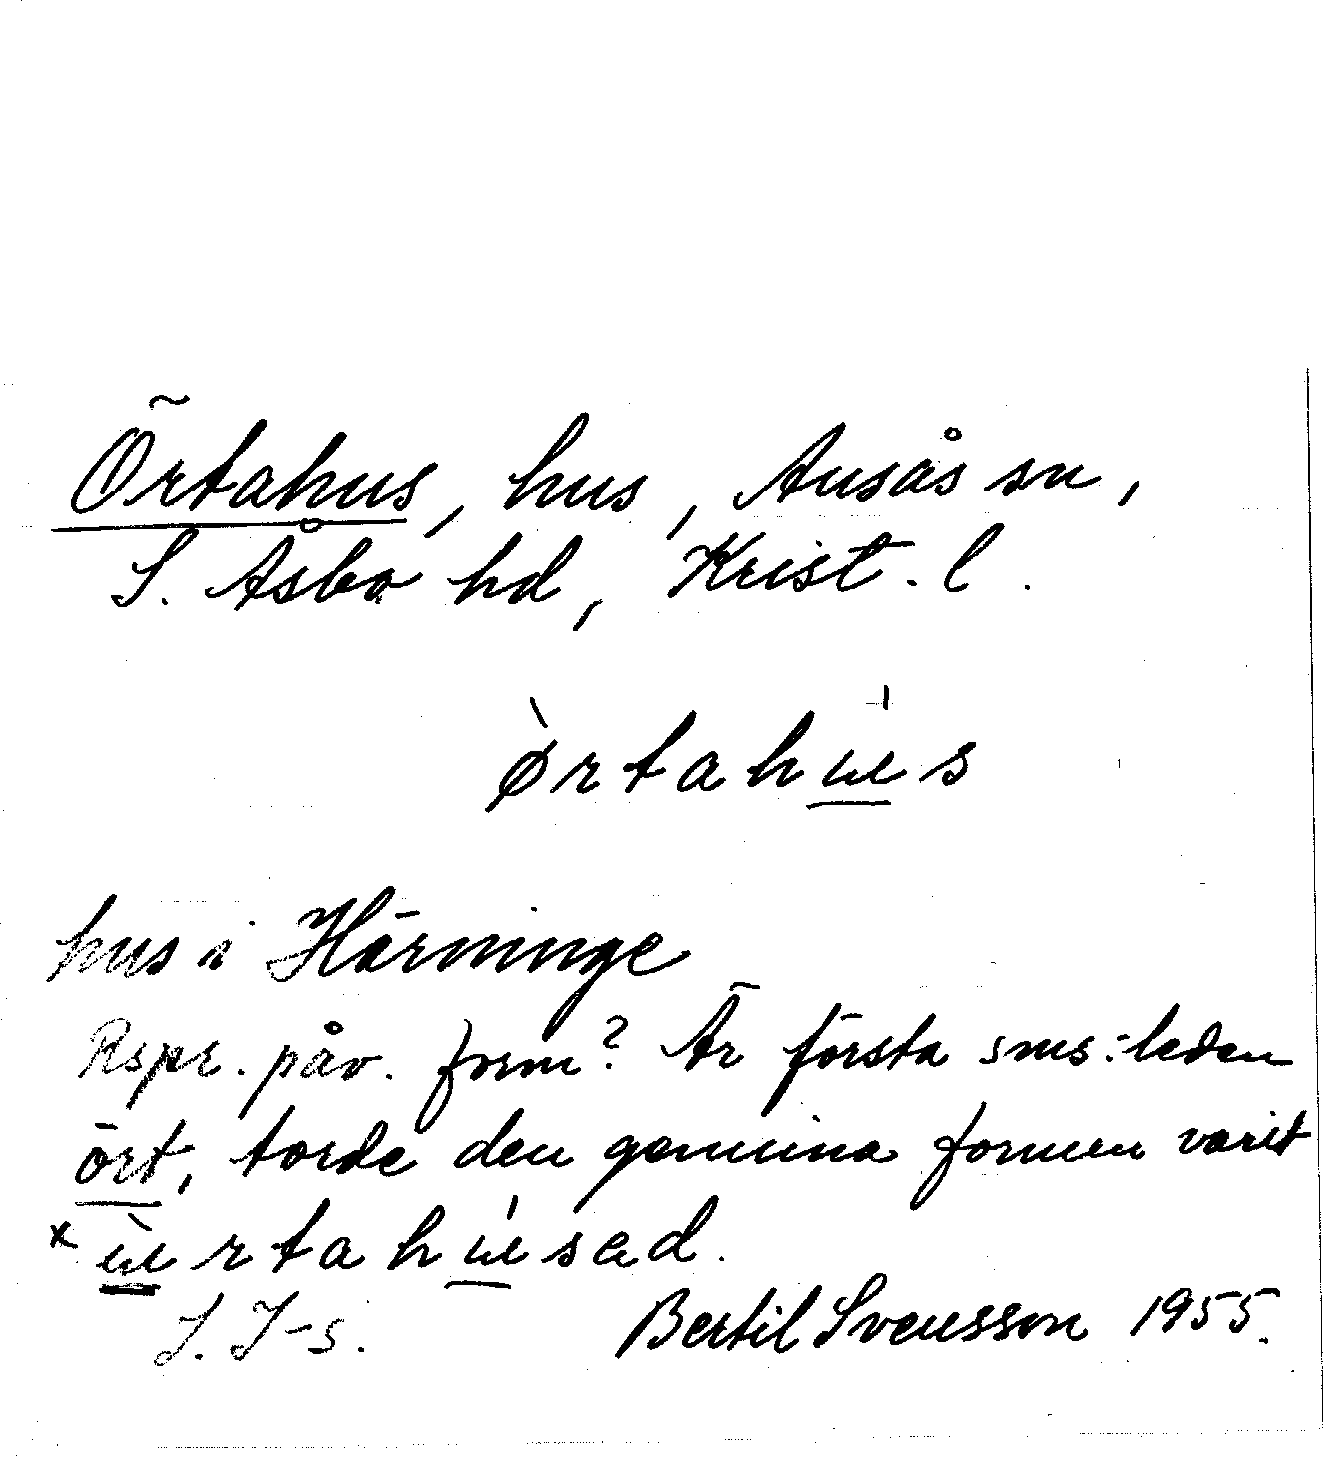 Örtahus, hus, Ausås sn,
S. Åsbo hd, Krist. l.
ø̀rtahu̍s
hus i Härninge
Rspr. påv. form? Är första sms:leden
ört, torde den genuina formen varit
×ùrtahu̍sed.
S. J-s. Bertil Svensson 1955.